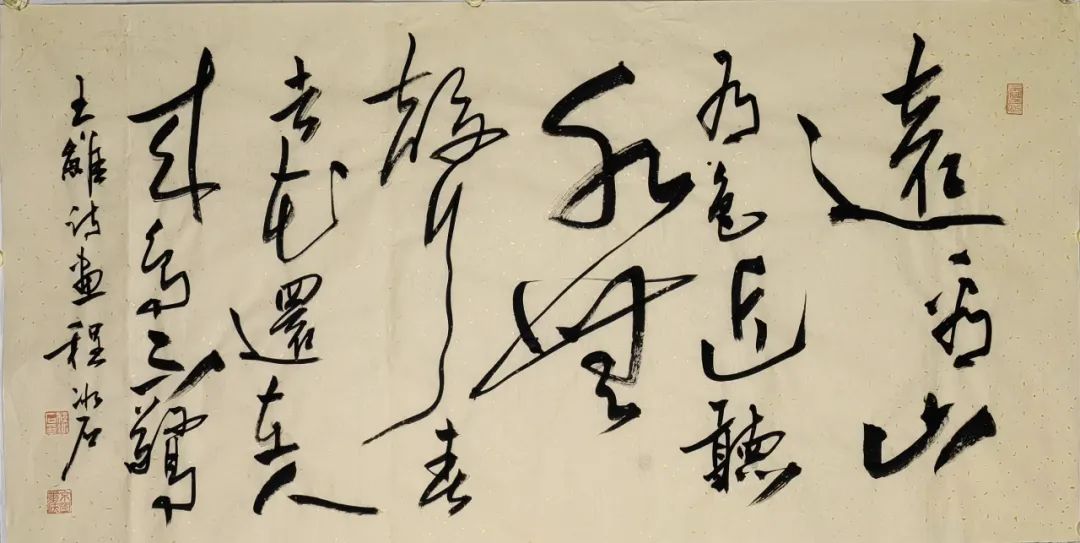 遠看山
有色近聽
水無
聲春
去花還在人
來鳥不驚
王維诗畫程冰石